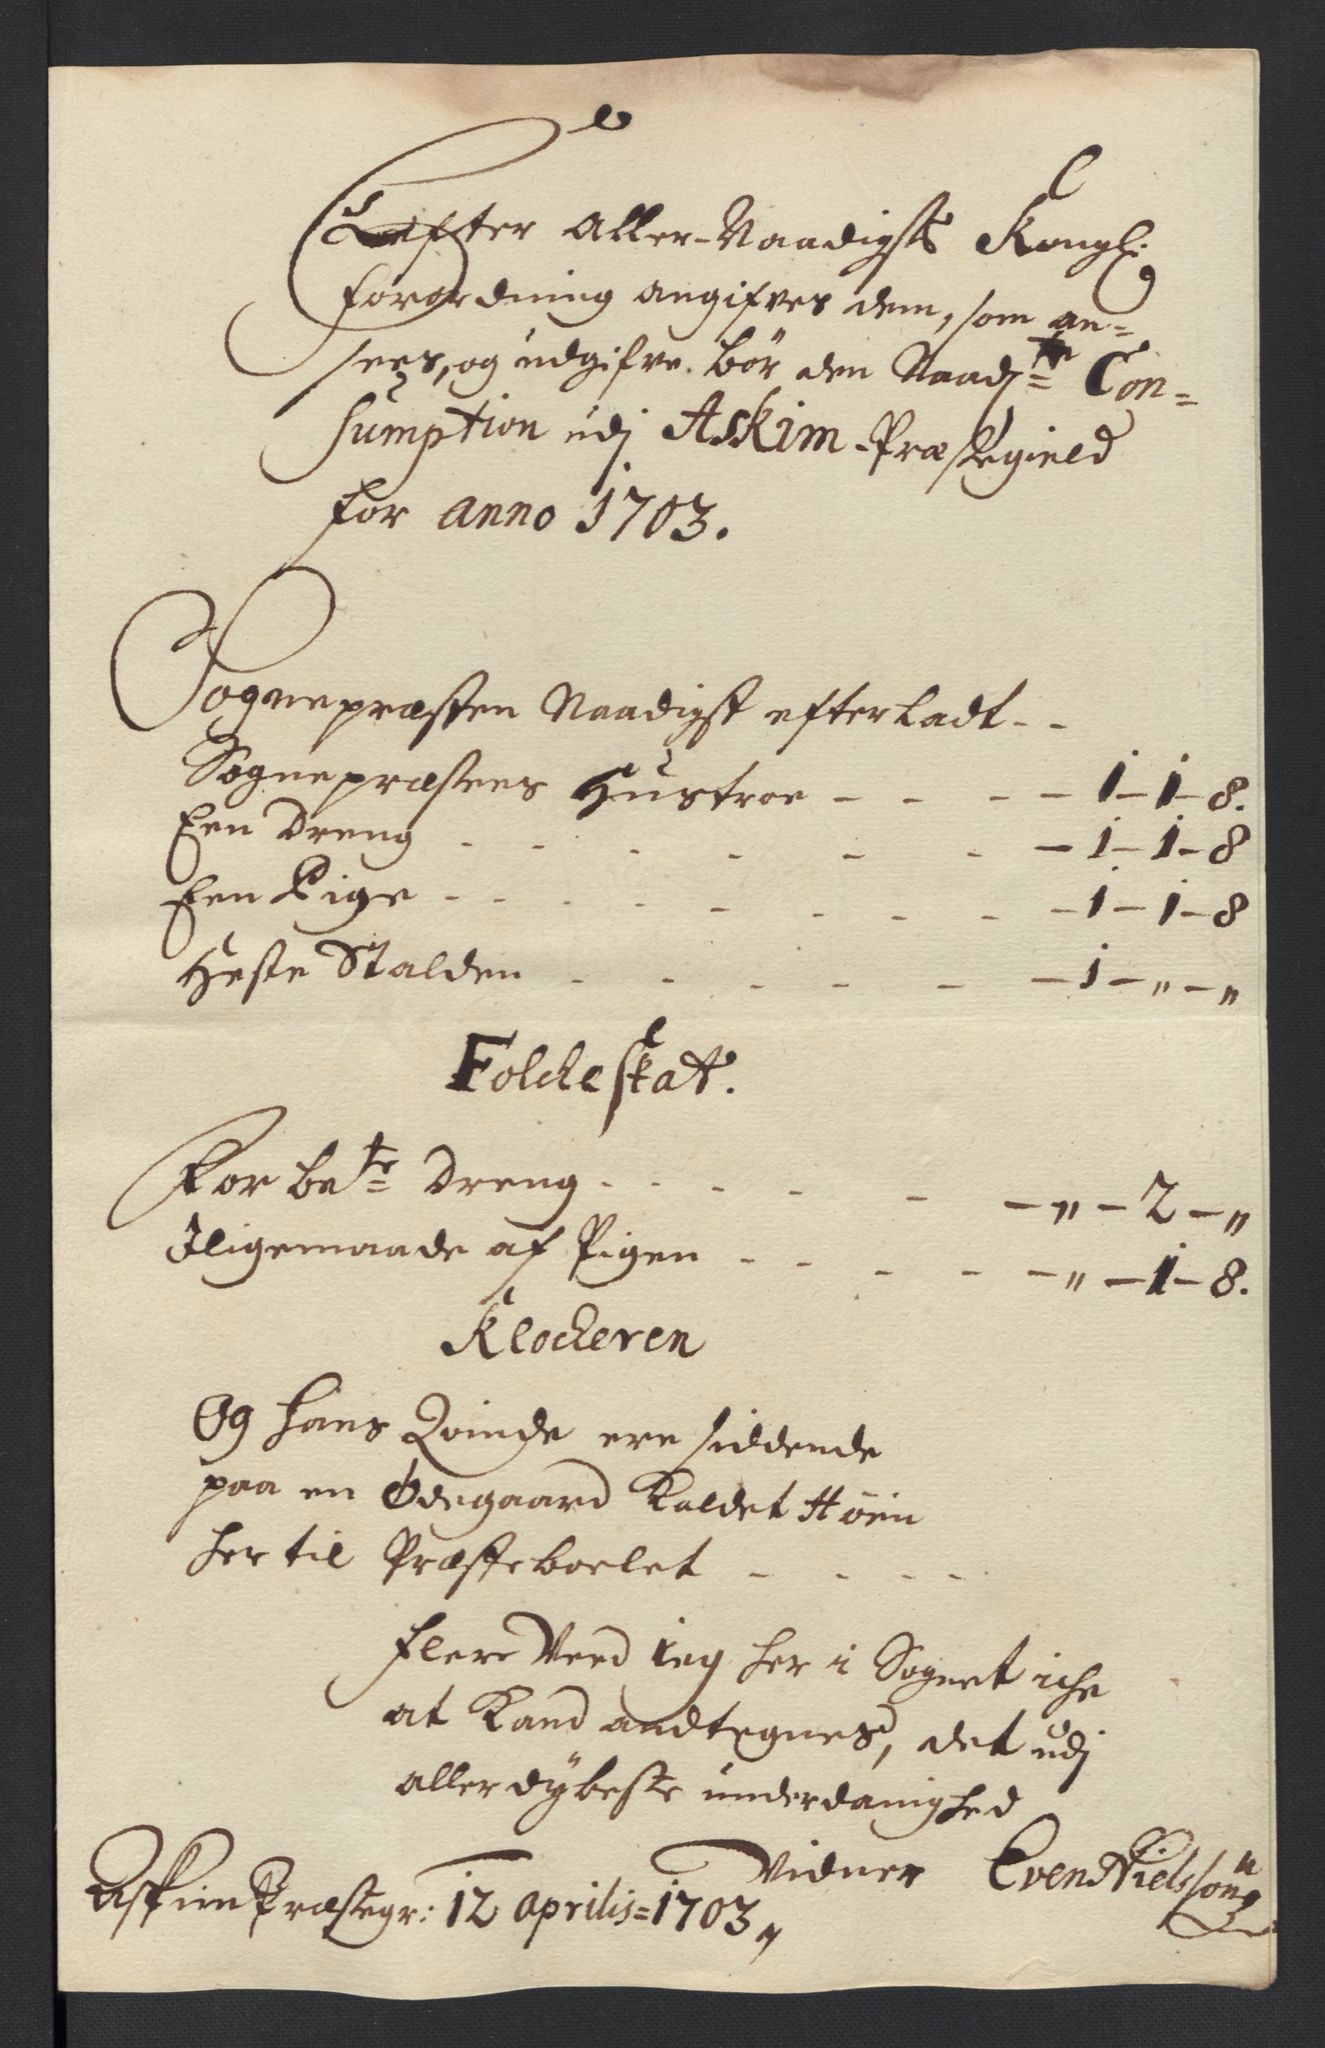 Eefter Aller-Naadigste Kongl:
forordning angifves dem, som an=
sees, og udgifve bør den Naadste Con=
sumption udj Askim-Præstegield
for anno 1703.
Sognepræsten Naadigst efterladt - -
Sognepræstens Hustroe - - - - 1 - 1 - 8.
Een Dreng - - - - - - - 1 - 1 - 8
Een Pige - - - - - - - - - 1 - 1 - 8
Heste Stalden - - - - - - 1 - " - "
Folckeskat.
For bete Dreng - - - - - - " - 2 - "
Iligemaade af Pigen - - - - - " - 1 - 8.
Klockeren
Og hans Qvinde ere siddende
paa en Ødegaard Kaldet Høën
her til Præsteboelet - - - -
flere Veed ieg her i Sognet iche
at Kand andtegnes, det udj
allerdÿbeste underdanighed
Vidner Even Nielssøn
Askim Præstegr: 12 Aprilis = 1703